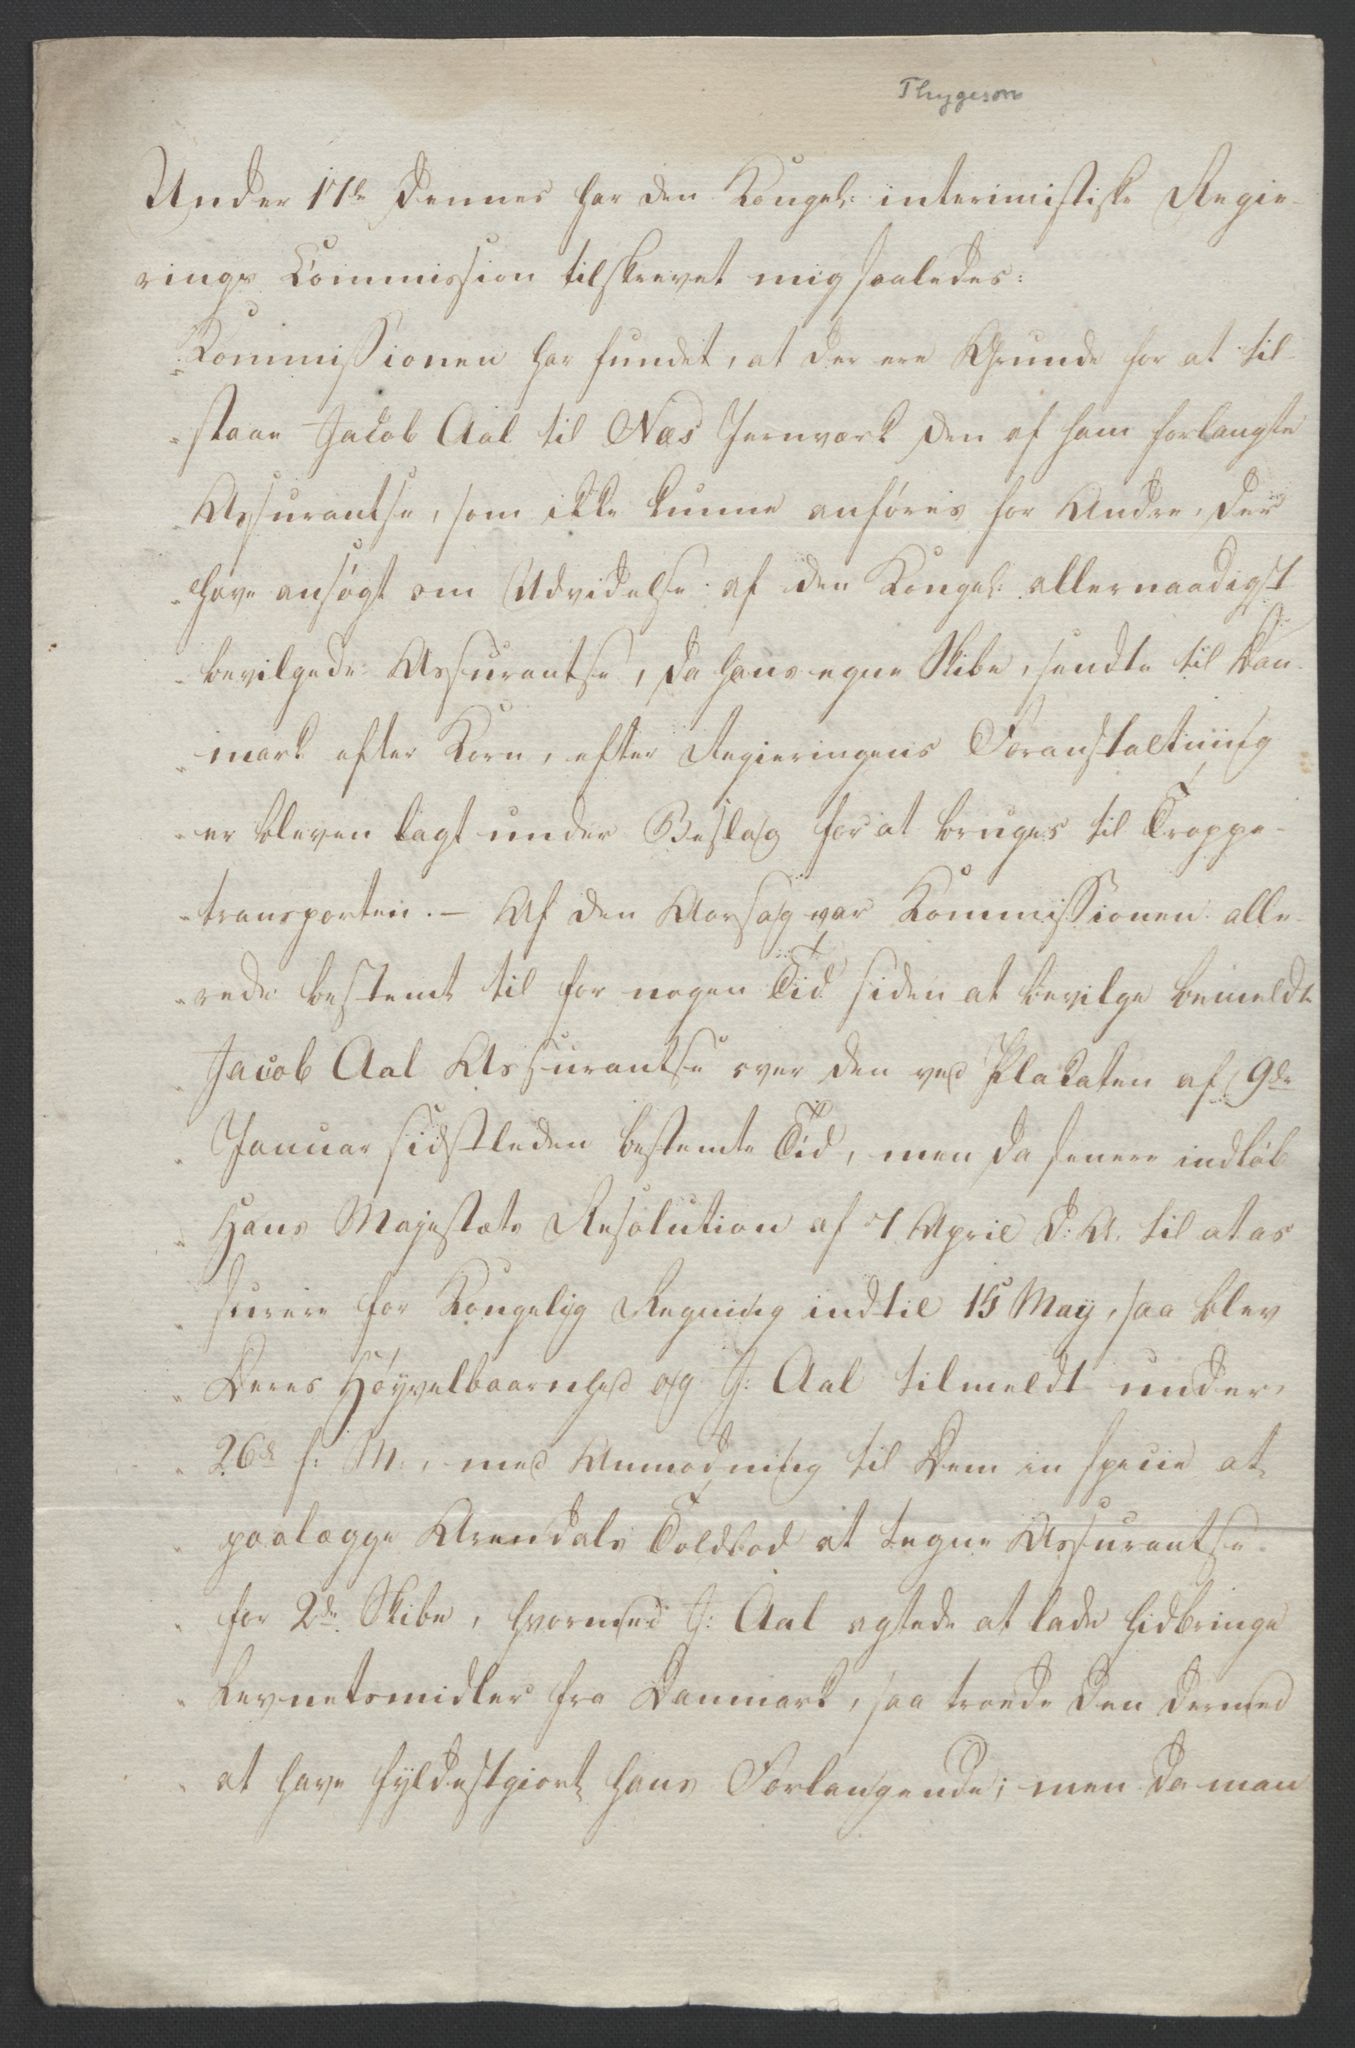 Thygeson
Under 17de Dennes har den Kongel: interimistiske Regie-
rings Commission tilskrevet mig saaledes:
"Kommissionen har fundet, at der ere Grunde for at til-
"staae Jacob Aal til Næs Jernværk den af ham forlangte
"Assurantse, som ikke kunne anføres for Andre, der
"have ansøgt om Udvidelse af den Kongel: allernaadigst
"bevilgede Assurantse, da hans egne Skibe, sendte til Dan-
"mark efter Korn, efter Regieringens Foranstaltning
"er bleven lagt under Beslag for at bruges til Troppe-
"transporten. – Af den Aarsag var Kommissionen alle-
"rede bestemt til for nogen Tid siden at bevilge bemeldte
"Jacob Aal Assurantse over den ved Plakaten af 9de
"Januar sidstleden bestemte Tid, men da senere indløb
"Hans Majestæts Resolution af 7 April d: A. til at as
"surere for Kongelig Regning indtil 15 May, saa blev
"Deres Høyvelbaarnhed og J: Aal tilmeldt under
"26de f: M:, med Anmodning til Dem in specie at
"paalægge Arendals Toldbod at tegne Assurantse
"for 2de Skibe, hvormed J: Aal agtede at lade hidbringe
"Levnetsmidler fra Danmark, saa troede den dermed
"at have fyldestgiort hans Forlangende; men da man